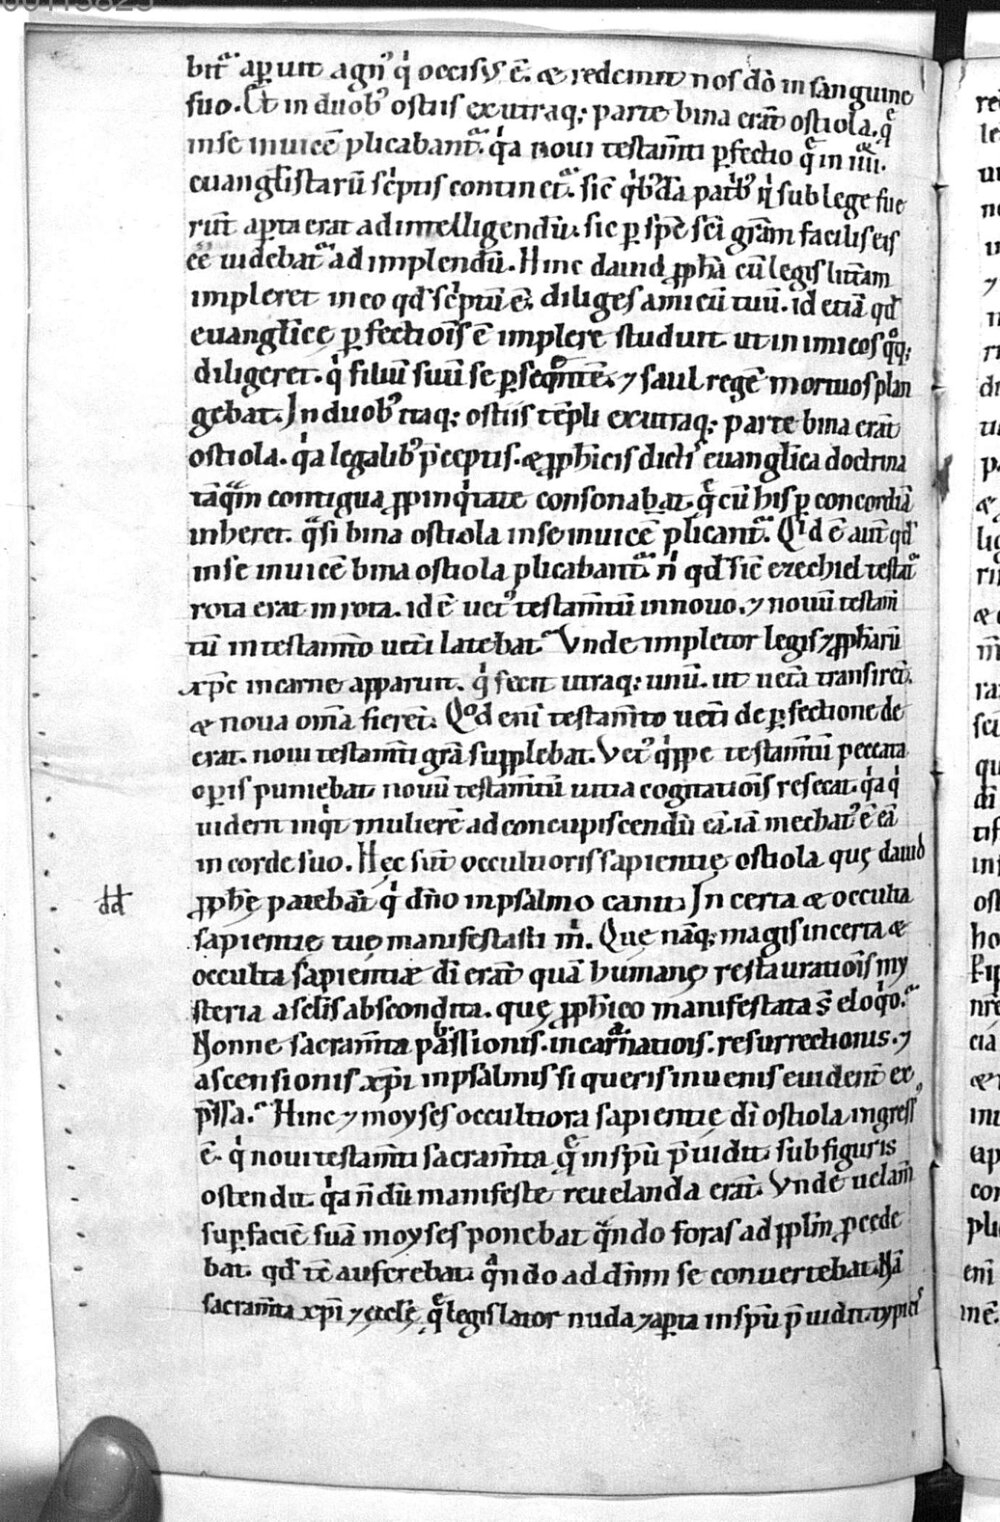 bitᷓ aꝑuit agnꝰ qͥ occisꝰ ē. & redemit nos dō in sanguine
suo. Et in duobꝰ ostiis ex utraq; parte bina erāt ostiola. q̄
in se inuicē plicabantᷓ. qͥa noui testam̄ti ꝑfectio q̄ in iiii.
euangl̄istarū sc̄ptis continetᷓ. sic̄ qͥbꝰdā patrͥbꝰ qͥ sub lege fue
rūt aꝑta erat ad intelligendū. sic ꝑ sp̄m sc̄i gr̄am facilis eis
ēē uidebatᷓ ad implendū. Hinc dauid ꝓph̄a cū legis litt̄am
impleret in eo qd̄ sc̄ptū ē. diliges amicū tuū. id etiā qd̄
euangl̄icę ꝑfectiōis ē implere studuit. ut inimicos qͦq;
diligeret. qͥ filiū suū se ꝑseqn̄tē. ⁊ saul regē mortuos plan
gebat. In duobꝰ itaq; ostiis tēpli ex utraq; parte bina erāt
ostiola. qͥa legalibꝰ p̄ceptis. & ꝓph̄icis dictis euangl̄ica doctrina
tāqᷓm contigua ꝓpinqͥtate consonabat. q̄ cū his ꝑ concordiā
inheret. qᷓsi bina ostiola in se inuicē plicantᷓ. Qͥd ē aut̄ qd̄
in se inuicē bina ostiola plicabantᷓ. n̄ qd̄ sic̄ ezechiel testatᷓ
rota erat in rota. id ē uetꝰ testam̄tū in nouo. ⁊ nouū testam̄
tū in testam̄to uet̄i latebat. Vnde impletor legis ⁊ ꝓph̄arū
xp̄c in carne apparuit. qͥ fecit utraq; unū. ut uet̄a transirēt.
& noua om̄a fierēt. Qͦd eni testam̄to uet̄i de ꝑfectione de
erat. noui testam̄ti gr̄a supplebat. Vetꝰ qͥppe testam̄tū peccata
oꝑis puniebat. nouū testam̄tū uitia cogitatiōis resecat. qͥa qͥ
uiderit inqͥt mulierē ad concupiscendū eā. iā mechatꝰ ē eā
in corde suo. Hęc sūt occultioris sapientię ostiola quę dauid
ꝓph̄ę patebāt qͥ dn̄o in psalmo canit. Incerta & occulta
sapientię tuę manifestasti m̄. Quę nāq; magis incerta &
occulta sapientiæ dī erāt quā humanę restauratiōis my
steria a sc̄lis abscondita. quę ꝓph̄ico manifestata s̄ eloqͥo.
Nonne sacram̄ta passionis. incarnatiōis. resurrectionis. ⁊
ascensionis xp̄i in psalmis si queris inuenis euident̄ ex
p̄ssa. Hinc ⁊ moyses occultiora sapientię dī ostiola ingressꝰ
ē. qͥ noui testam̄ti sacram̄ta q̄ in sp̄u p̄uidit. sub figuris
ostendit. qͥa n̄dū manifeste reuelanda erāt. Vnde uelam̄
suꝑ faciē suā moyses ponebat qᷓndo foras ad ppl̄m ꝓcede
bat. qd̄ tē auferebat. qᷓndo ad dn̄m se conuertebat. Nā
sacram̄ta xp̄i ⁊ ęccl̄ę q̄ legislator nuda ⁊ aꝑta in sp̄u p̄uidit. typicis
dd